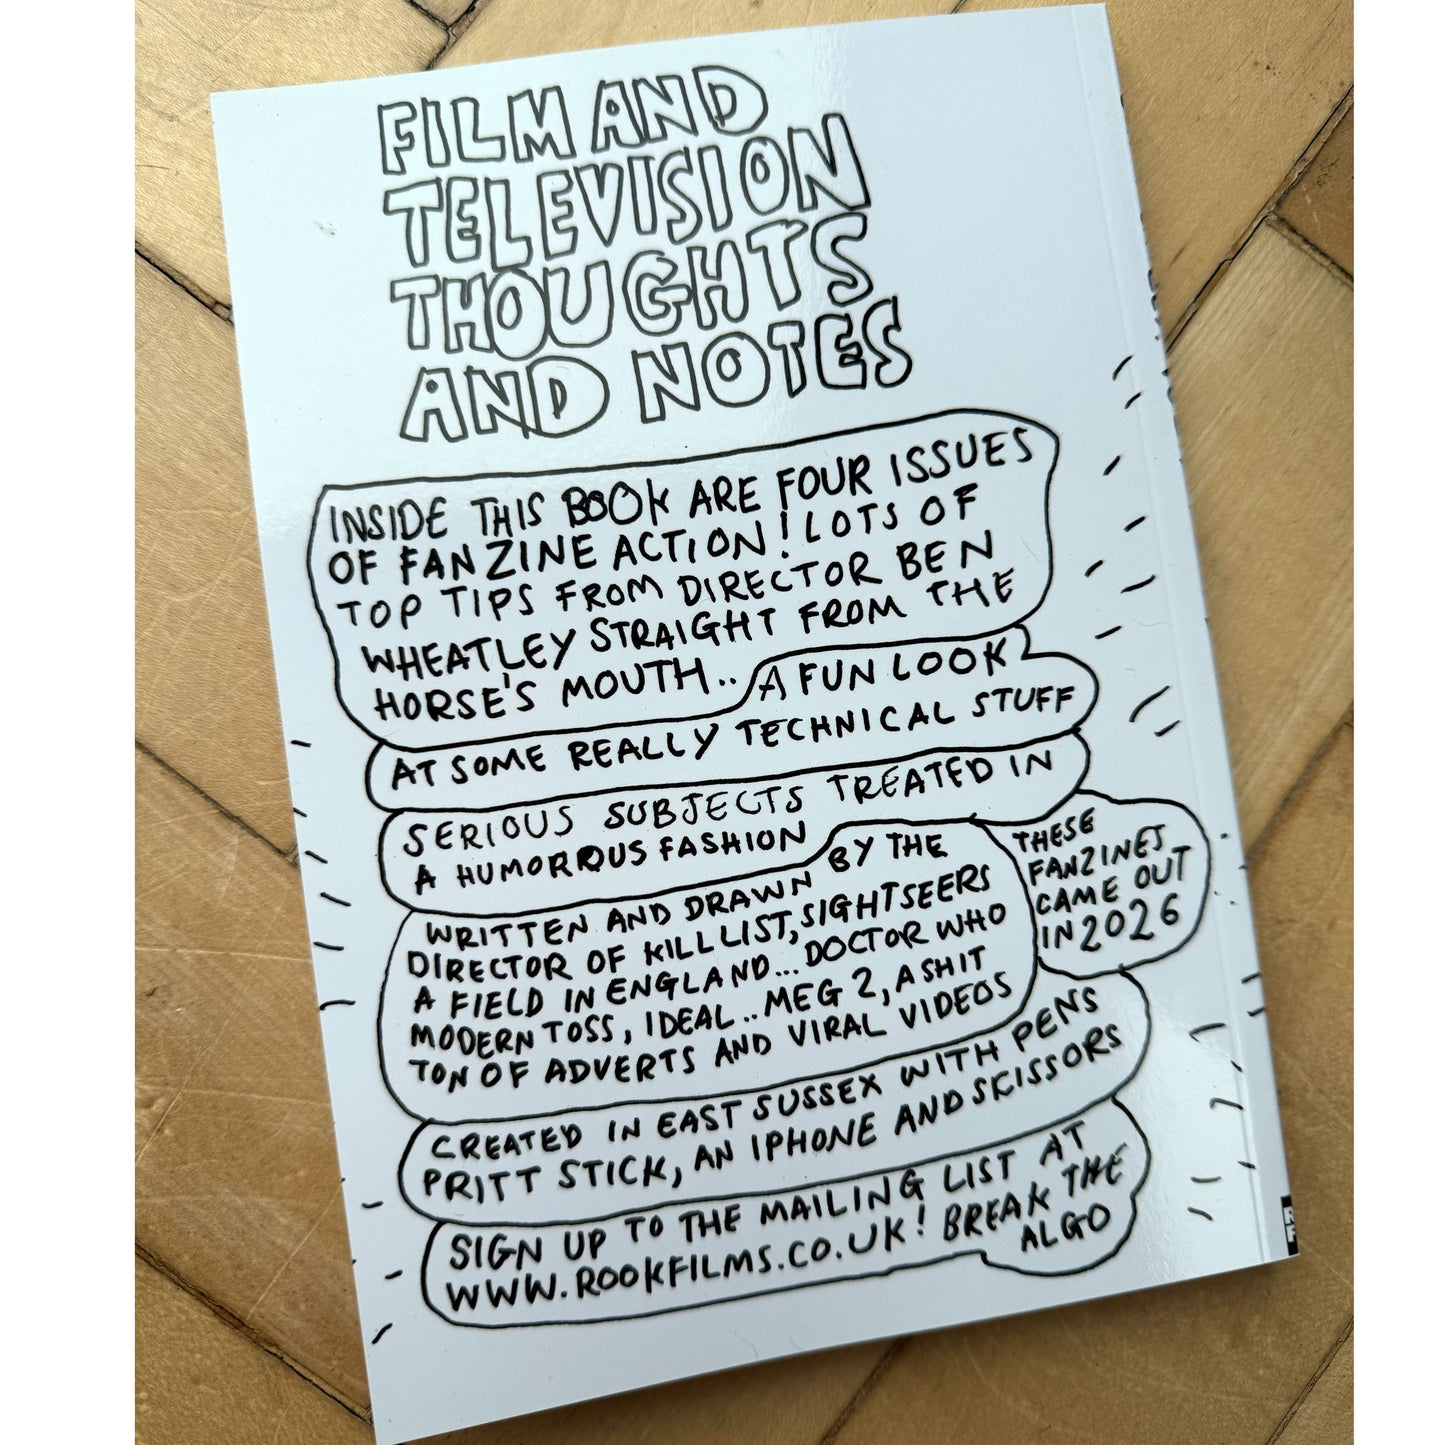 FILM AND
TELEVISION
THOUGHTS
AND NOTES
INSIDE THIS BOOK ARE FOUR ISSUES
OF FANZINE ACTION! LOTS OF
TOP TIPS FROM DIRECTOR BEN
WHEATLEY STRAIGHT FROM THE
HORSE'S MOUTH..
A FUN LOOK
AT SOME REALLY TECHNICAL STUFF
SERIOUS SUBJECTS TREATED IN
A HUMOROUS FASHION
WRITTEN AND DRAWN BY THE
DIRECTOR OF KILL LIST, SIGHTSEERS
A FIELD IN ENGLAND... DOCTOR WHO
MODERN TOSS, IDEAL.. MEG 2, A SHIT
TON OF ADVERTS AND VIRAL VIDEOS
THESE
FANZINES
CAME OUT
IN 2026
CREATED IN EAST SUSSEX WITH PENS
PRITT STICK, AN IPHONE AND SKISSORS
SIGN UP TO THE MAILING LIST AT
WWW.ROOKFILMS.CO.UK! BREAK THE
ALGO